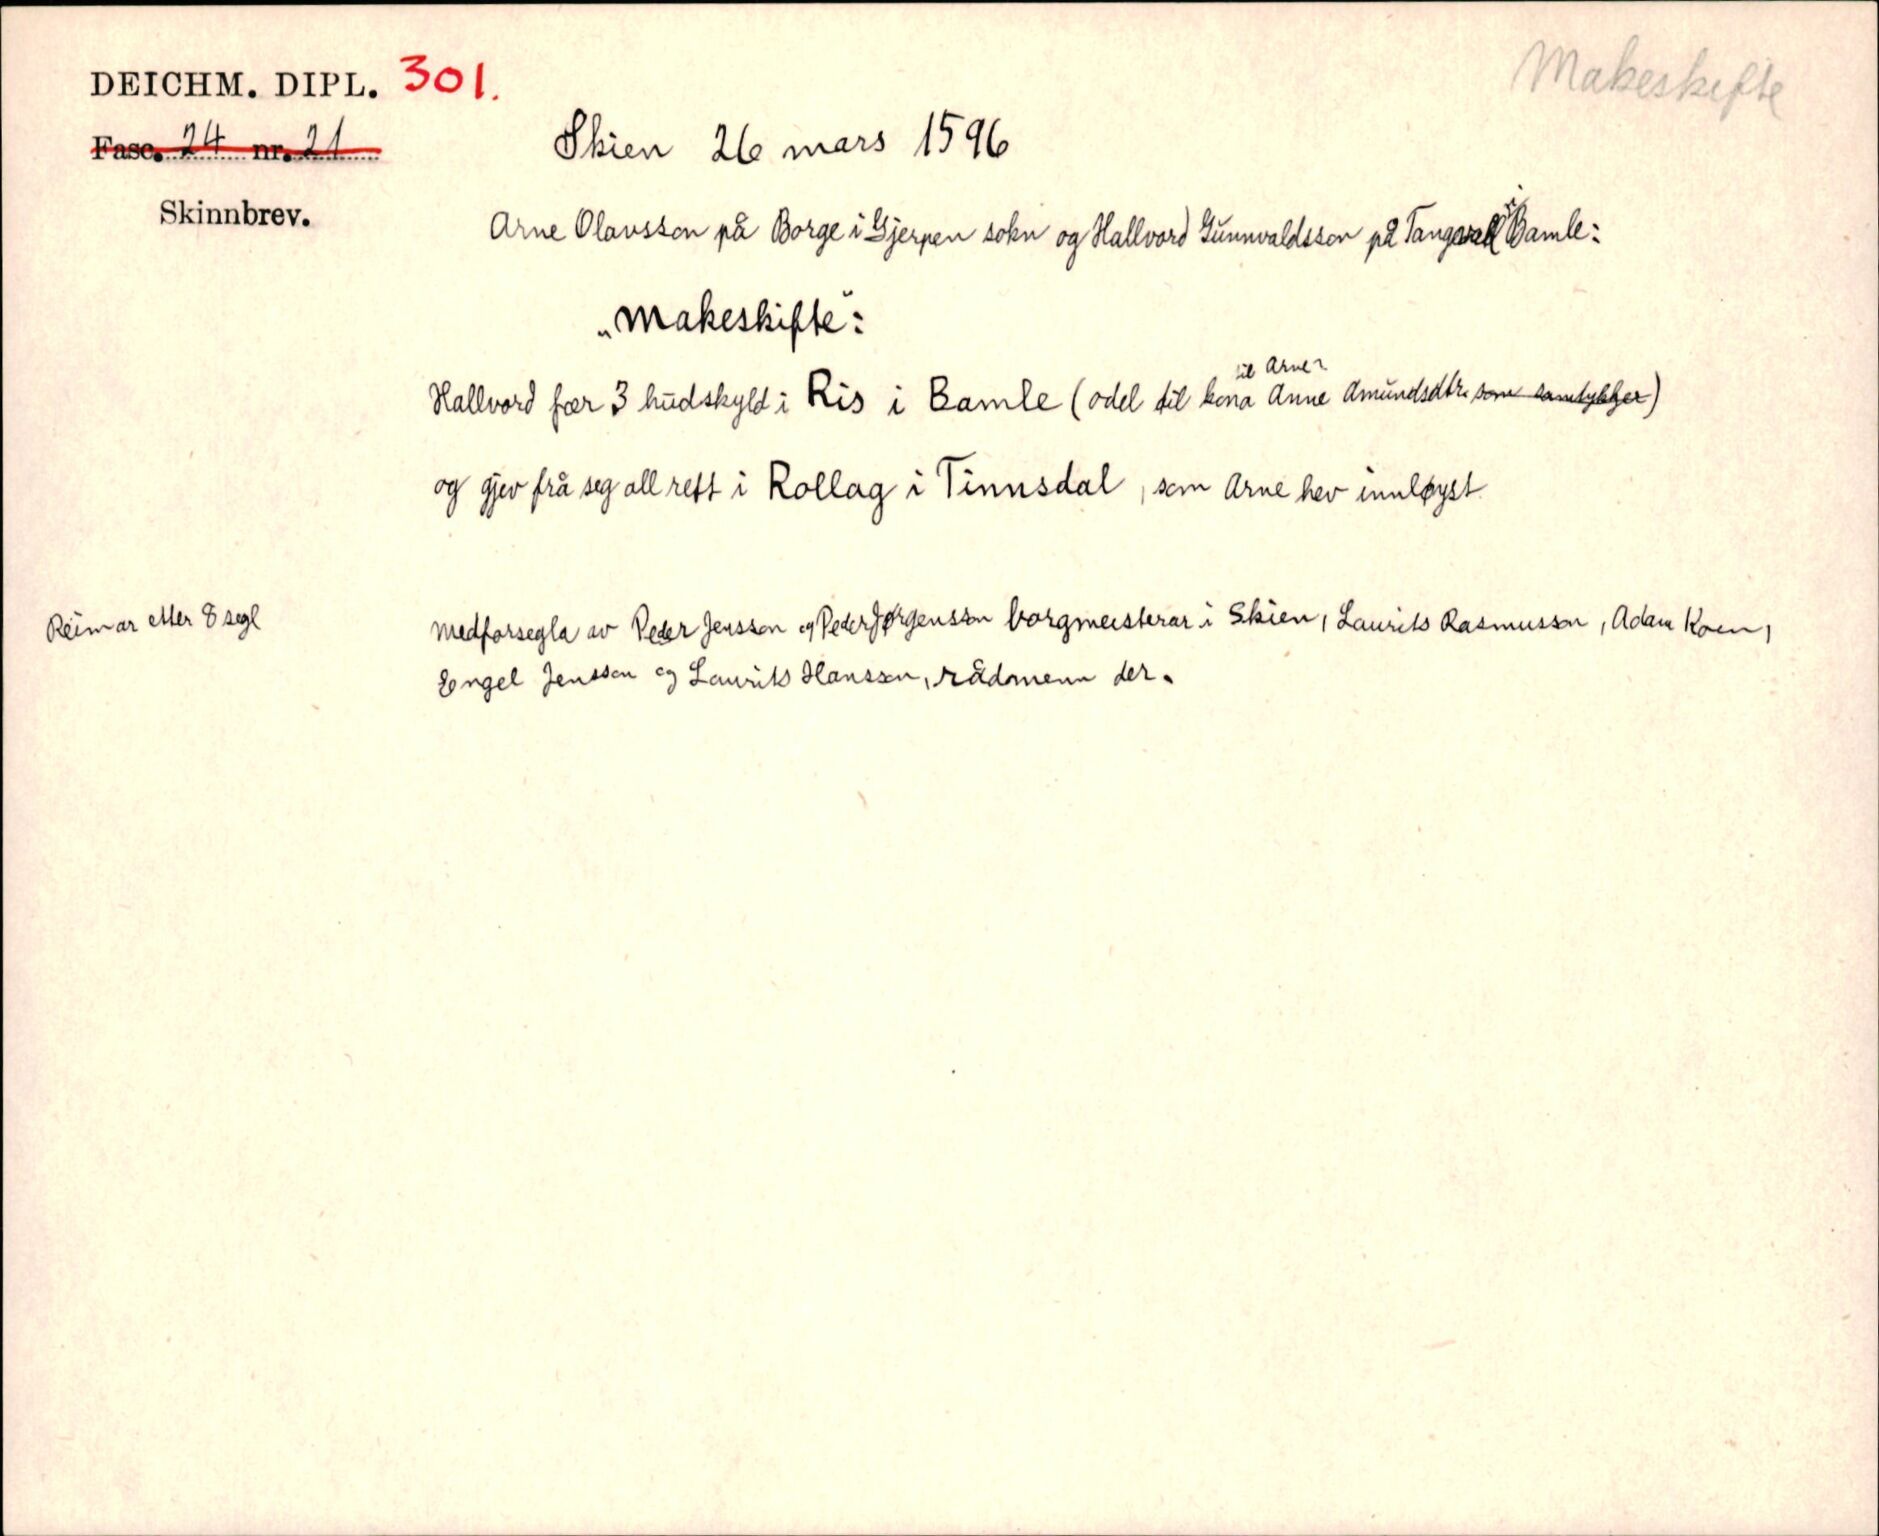 DEICHM. DIPL. 301.
Makeskifte
Fasc. 24 nr. 21
Skien 26 mars 1596
Skinnbrev.
Arne Olavsson på Borge i Gjerpen sokn og Hallvord Gunnvaldsson på Tangvall i Bamle:
„Makeskifte“:
til Arne
Hallvord fær 3 hudskyld i Ris i Bamle (odel til kona Anne Amundsdtr. som samtykkjer)
og gjev frå seg all rett i Rollag i Tinnsdal, som Arne hev innløyst
Reimar etter 8 segl
Medforsegla av Peder Jensson og Peder Jørgensson borgmeisterar i Skien, Laurits Rasmusson, Adam Koen,
Engel Jensson og Laurits Hansson, rådmenn der.